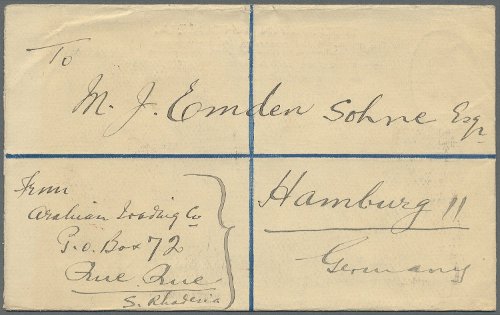 To
M. J. Emden Sohne Esqr
Hamburg 11
Germany
From
Arabian Trading Co
P.O. Box 72
Que Que
S. Rhodesia